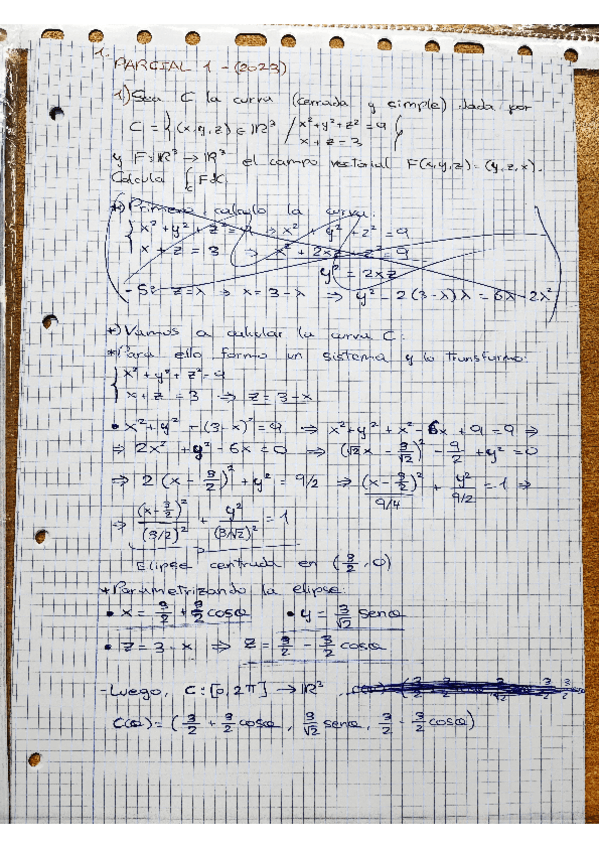 1.
PARCIAL 1 - (2023)
1) Sea C la curva (cerrada y simple) dada por
C = {(x,y,z) ∈ ℝ³ / x²+y²+z² = 9
x + z = 3 }
y F: ℝ³ → ℝ³ el campo vectorial F(x,y,z) = (y, z, x).
Calcula ∫_C F
*) Primero calculo la curva:
{ x² + y² + z² = 9 ⇒ x² + y² + z² = 9
x + z = 3 ⇒ x² + 2xz + z² = 9
y² = 2xz
- Si z = λ ⇒ x = 3 - λ ⇒ y² = 2(3-λ)λ = 6λ - 2λ²
*) Vamos a calcular la curva C:
* Para ello formo un sistema y lo transformo:
{ x² + y² + z² = 9
x + z = 3 ⇒ z = 3 - x
• x² + y² - (3-x)² = 9 ⇒ x² + y² + x² - 6x + 9 = 9 ⇒
⇒ 2x² + y² - 6x = 0 ⇒ (√2x - 3/√2)² - 9/2 + y² = 0
⇒ 2(x - 3/2)² + y² = 9/2 ⇒ (x - 3/2)²/(9/4) + y²/(9/2) = 1 ⇒
⇒ (x - 3/2)²/(3/2)² + y²/(3/√2)² = 1
Elipse centrada en (3/2, 0)
* Parametrizando la elipse:
• x = 3/2 + 3/2 cosθ • y = 3/√2 senθ
• z = 3 - x ⇒ z = 3/2 - 3/2 cosθ
- Luego, C: [0, 2π] → ℝ³
C(θ) = (3/2 + 3/2 cosθ, 3/√2 senθ, 3/2 - 3/2 cosθ)